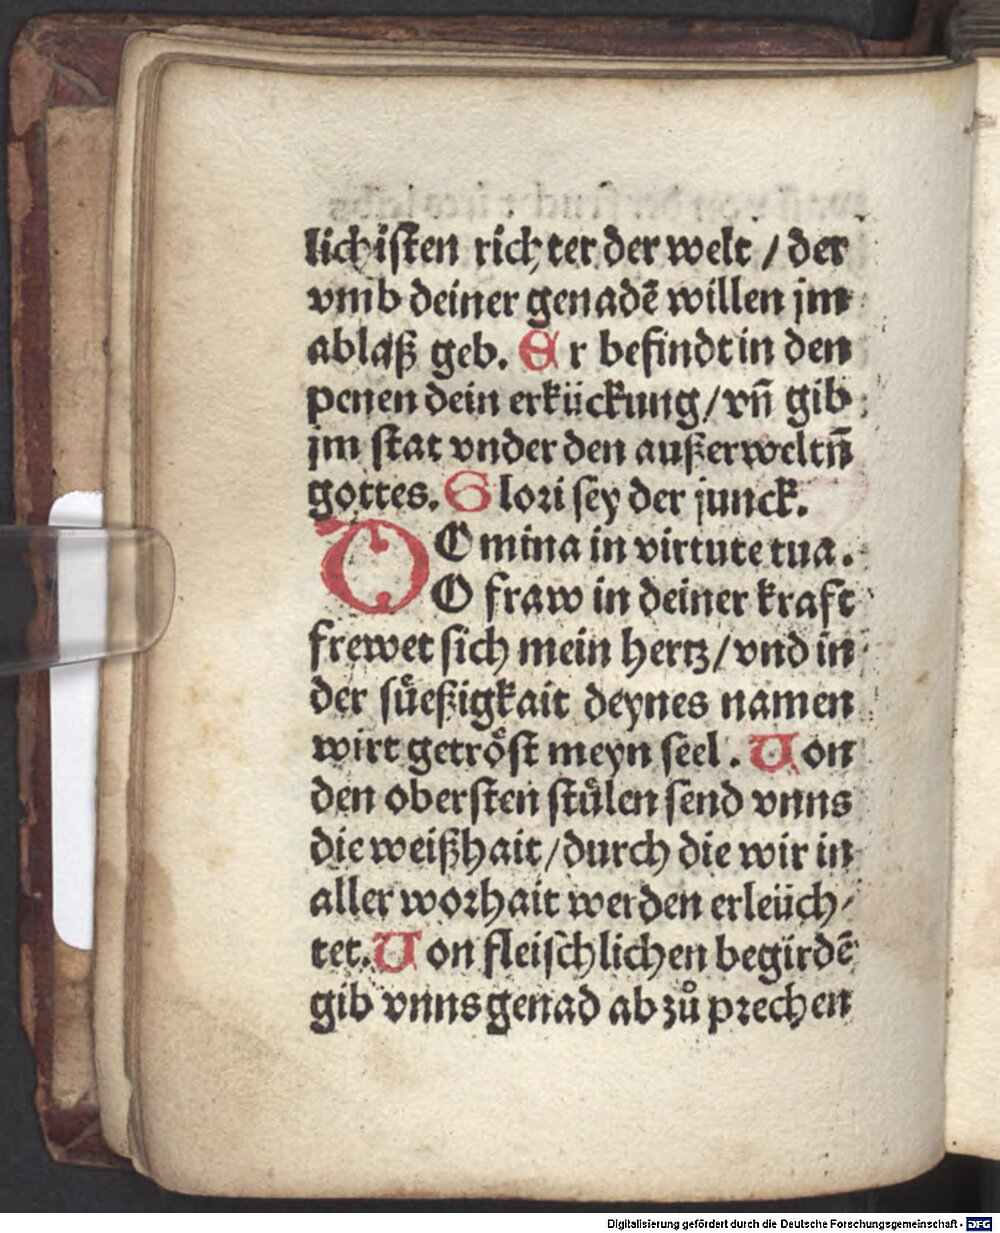 lichisten richter der welt / der
vmb deiner genadē willen jm
ablaß geb. Er befindt in den
penen dein erkückung / vn̄ gib
jm stat vnder den außerweltn̄
gottes. Glori sey der junck.
DOmina in virtute tua.
O fraw in deiner kraft
frewet sich mein hertz / vnd in
der sůeßigkait deynes namen
wirt getröst meyn seel. Von
den obersten stůlen send vnns
die weißhait / durch die wir in
aller worhait werden erleüch⸗
tet. Von fleischlichen begirdē
gib vnns genad abzů prechen
Digitalisierung gefördert durch die Deutsche Forschungsgemeinschaft - DFG